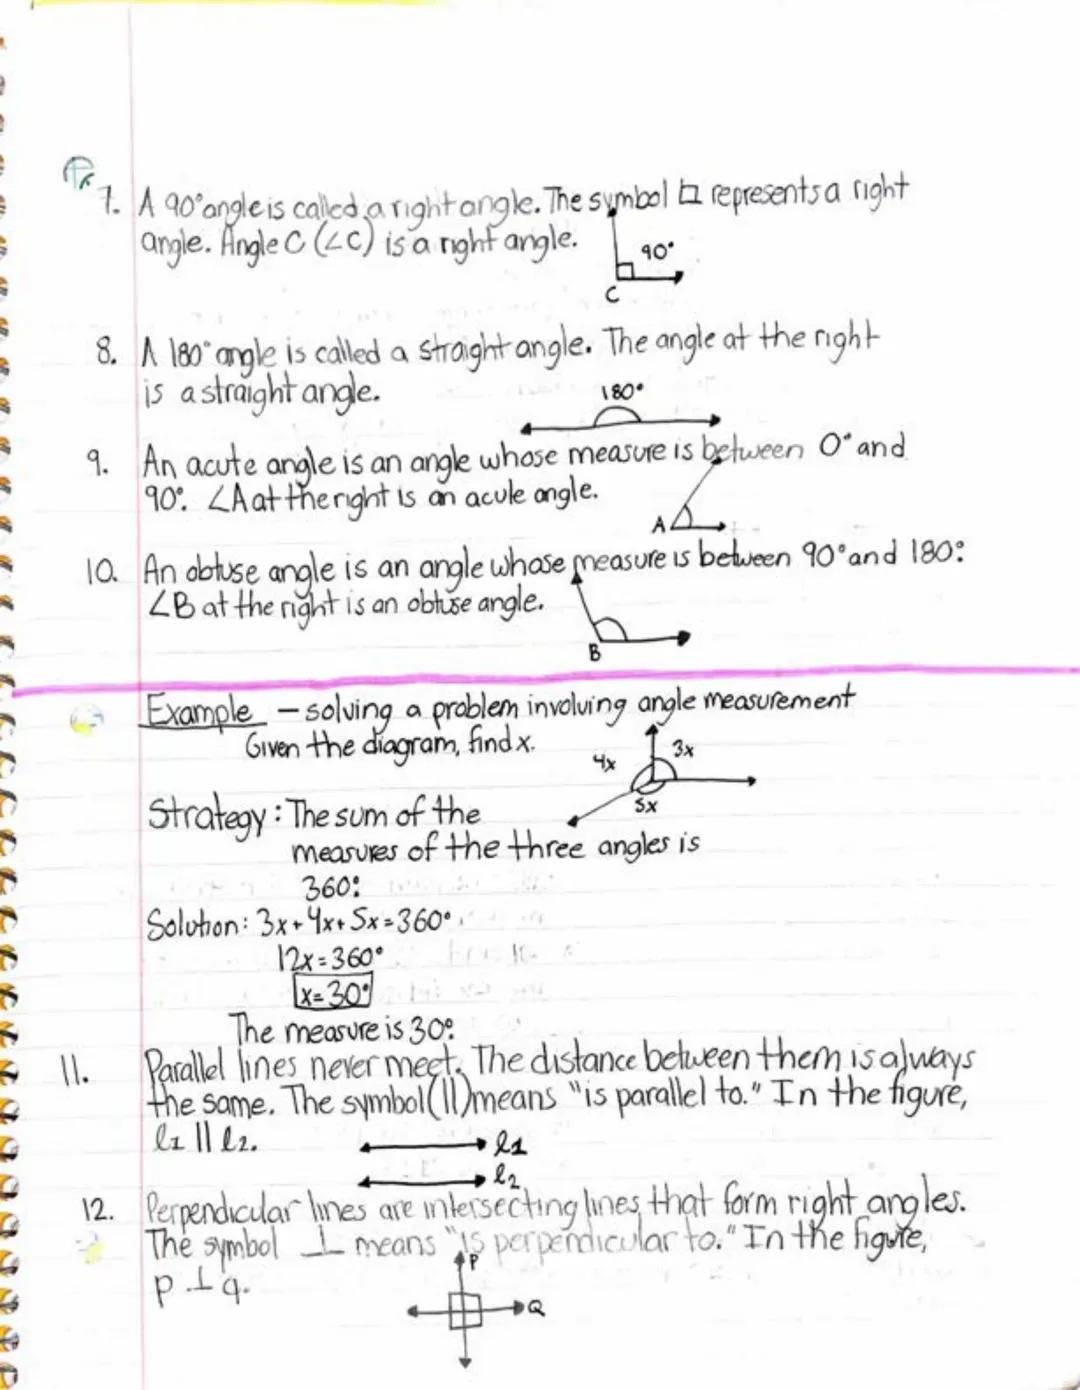 7. A 90° angle is called a right angle. The symbol ∟ represents a right
angle. Angle C (∠C) is a right angle.
90°
C
8. A 180° angle is called a straight angle. The angle at the right
is a straight angle.
180°
9. An acute angle is an angle whose measure is between 0° and
90°. ∠A at the right is an acule angle.
A
10. An obtuse angle is an angle whose measure is between 90° and 180°.
∠B at the right is an obtuse angle.
B
Example - solving a problem involving angle measurement
Given the diagram, find x.
4x 3x
5x
Strategy: The sum of the
measures of the three angles is
360°.
Solution: 3x+4x+5x=360°
12x=360°
x=30°
The measure is 30°.
11. Parallel lines never meet. The distance between them is always
the same. The symbol (||) means "is parallel to." In the figure,
ℓ1 || ℓ2.
ℓ1
ℓ2
12. Perpendicular lines are intersecting lines that form right angles.
The symbol ⊥ means "is perpendicular to." In the figure,
p ⊥ q.
P
Q